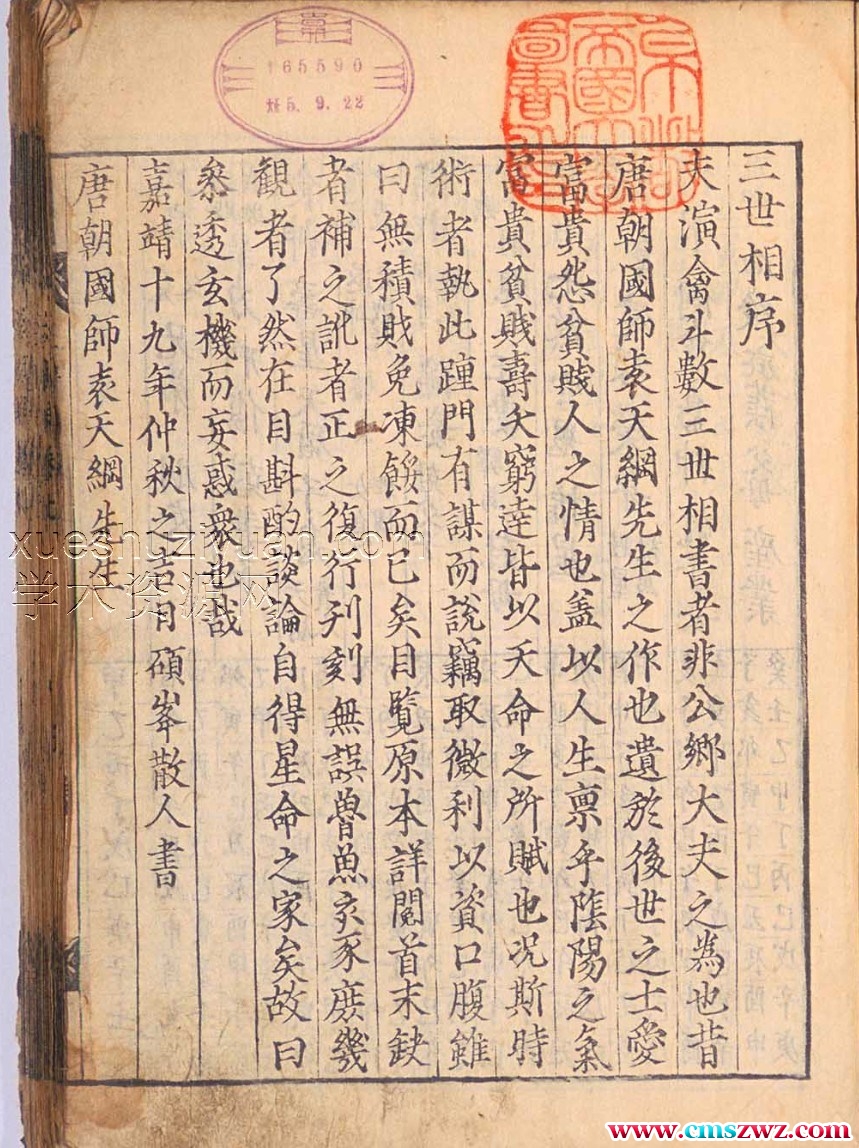 三世相序
夫演禽斗數三世相書者非公鄉大夫之為也昔
唐朝國師袁天綱先生之作也遺於後世之士愛
富貴怨貧賤人之情也盖以人生禀乎陰陽之氣
富貴貧賤壽夭窮達皆以天命之所賦也况斯時
術者執此踵門有謀而說竊取微利以資口腹雖
曰無積財免凍餒而已矣目覧原本詳閱首末缺
者補之訛者正之復行刋刻無誤魯魚亥豕庶幾
観者了然在目斟酌談論自得星命之家矣故曰
叅透玄機而妄惑衆也哉
嘉靖十九年仲秋之吉日碩峯散人書
唐朝國師袁天綱先生
165590
5.9.22
xueshuziyuan.com
学术资源网
www.cmszwz.com